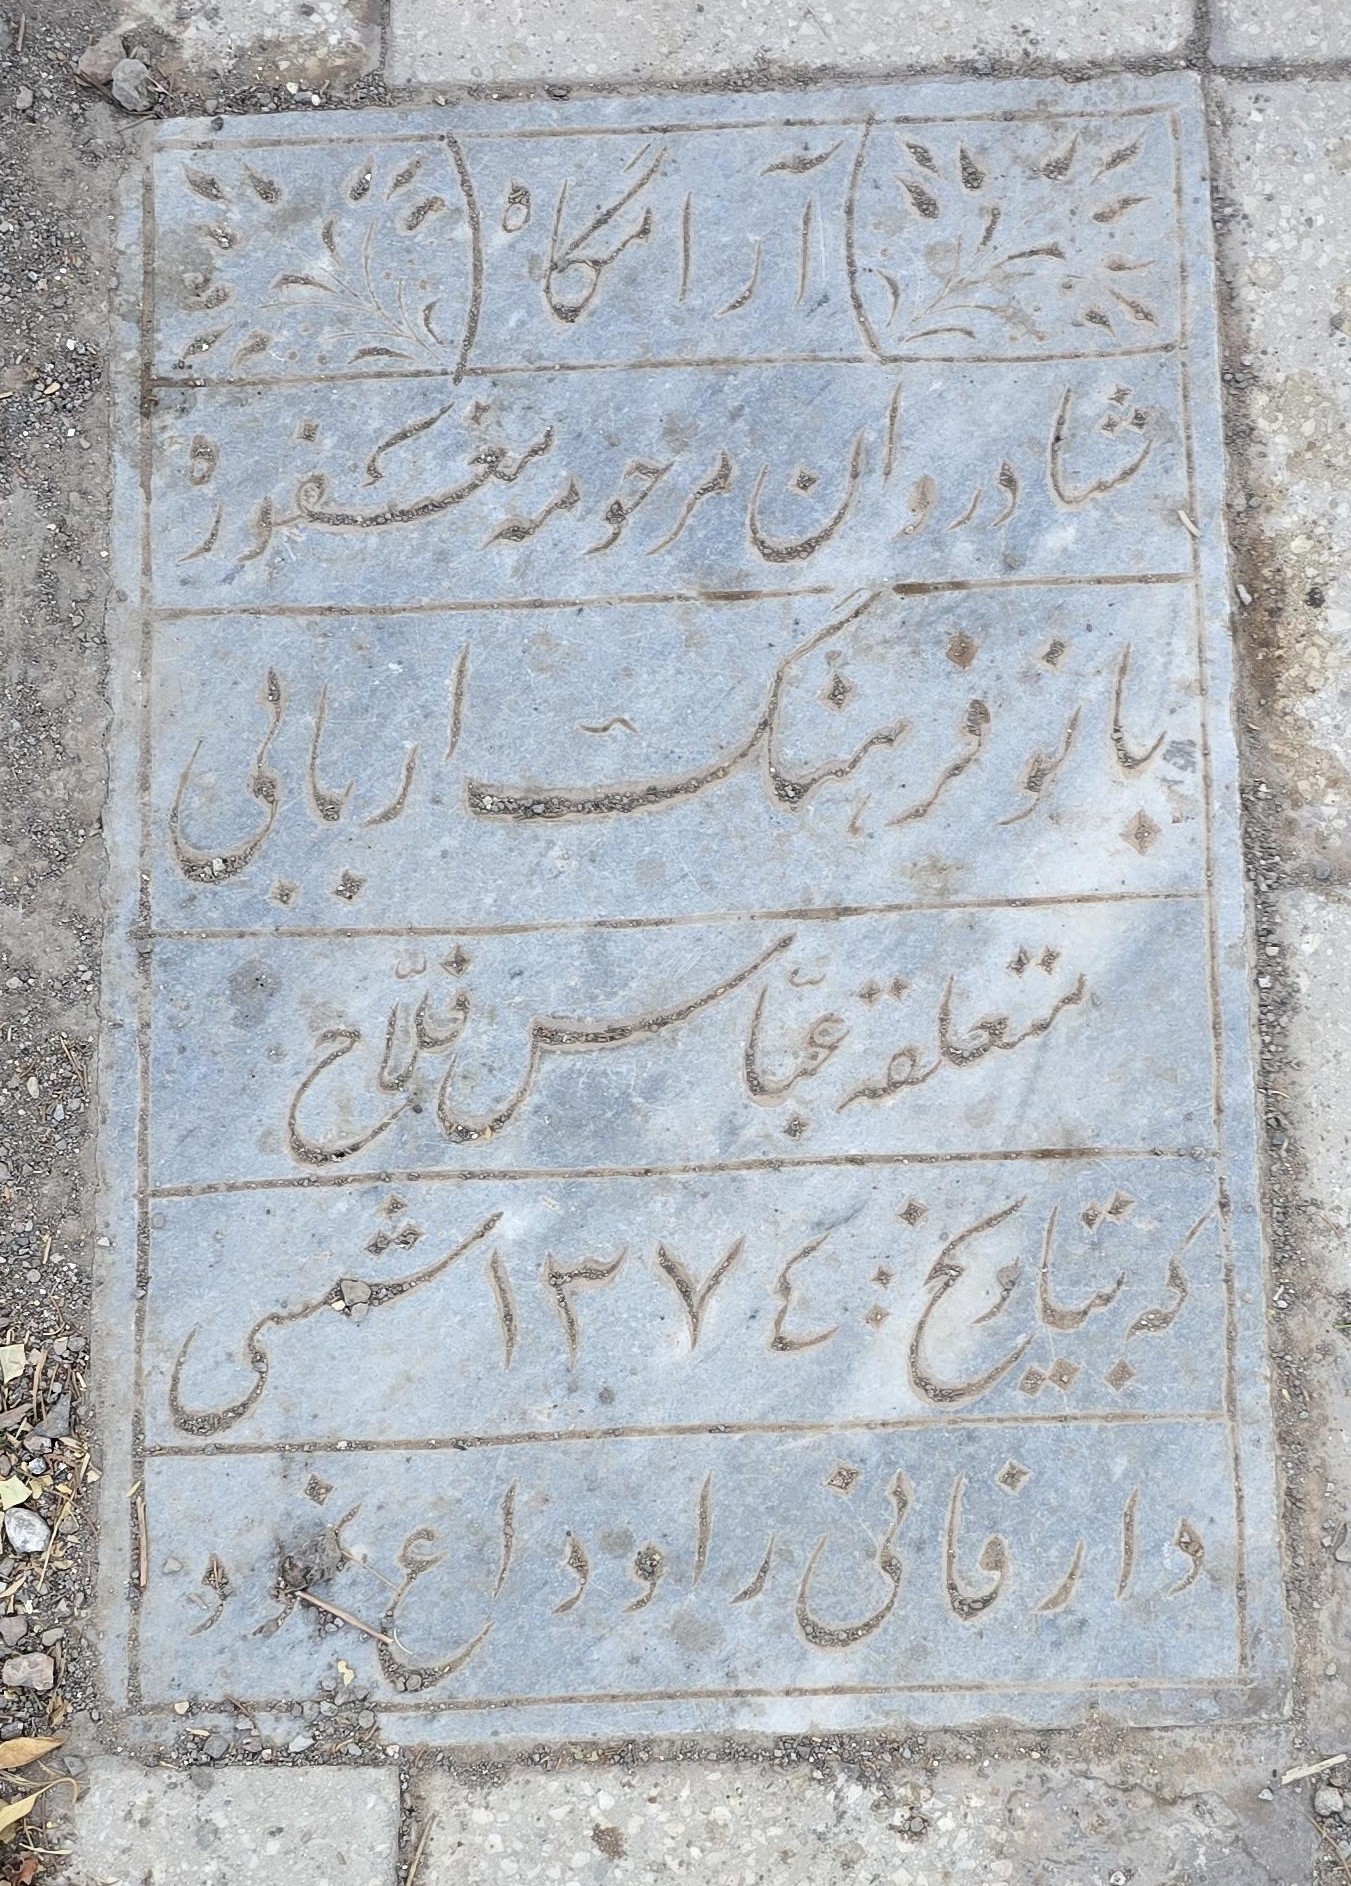 آرامگاه
شادروان مرحومه مغفوره
بانو فرهنگ اربابی
متعلقه عبّاس فلّاح
که بتاریخ : ١٣٧٤ شمسی
دار فانی را وداع نمود